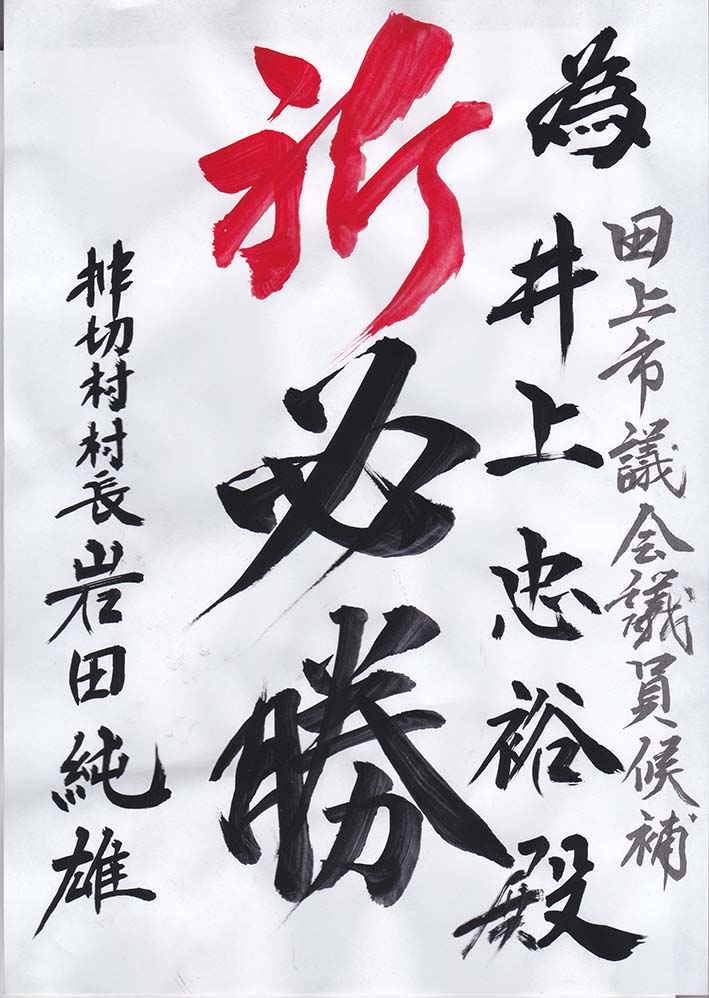 為
田上市議会議員候補
井上忠裕殿
祈必勝
押切村村長 岩田純雄